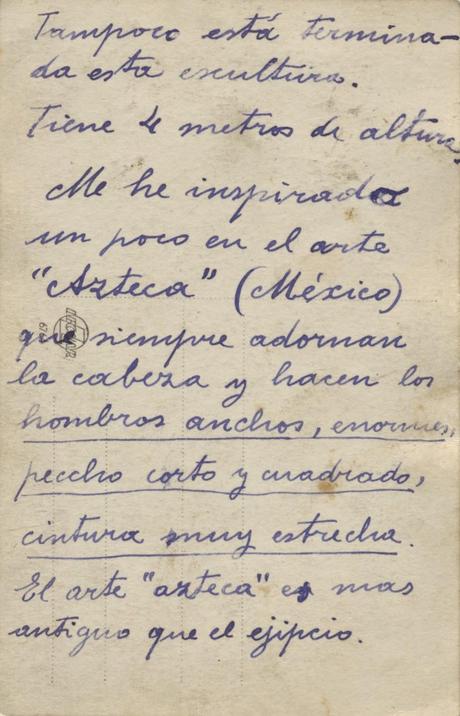 Tampoco está termina-
da esta escultura.
Tiene 4 metros de altura.
Me he inspirado
un poco en el arte
"Azteca" (México)
que siempre adornan
la cabeza y hacen los
hombros anchos, enormes,
peccho corto y cuadrado,
cintura muy estrecha.
El arte "azteca" es mas
antiguo que el ejipcio.